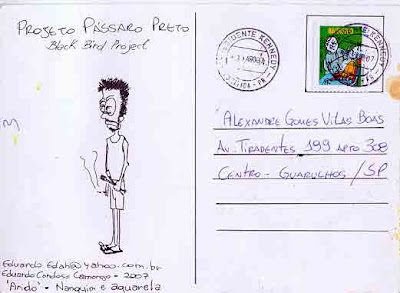 PROJETO PÁSSARO PRETO
Black Bird Project
PRESIDENTE KENNEDY
ALEXANDRE GOMES VILAS BOAS
AV. TIRADENTES, 199 APTO 308
CENTRO - GUARULHOS / SP
Eduardo Edah@yahoo.com.br
Eduardo Cardoso Camargo - 2007
"Árido" - Nanquim e aquarela